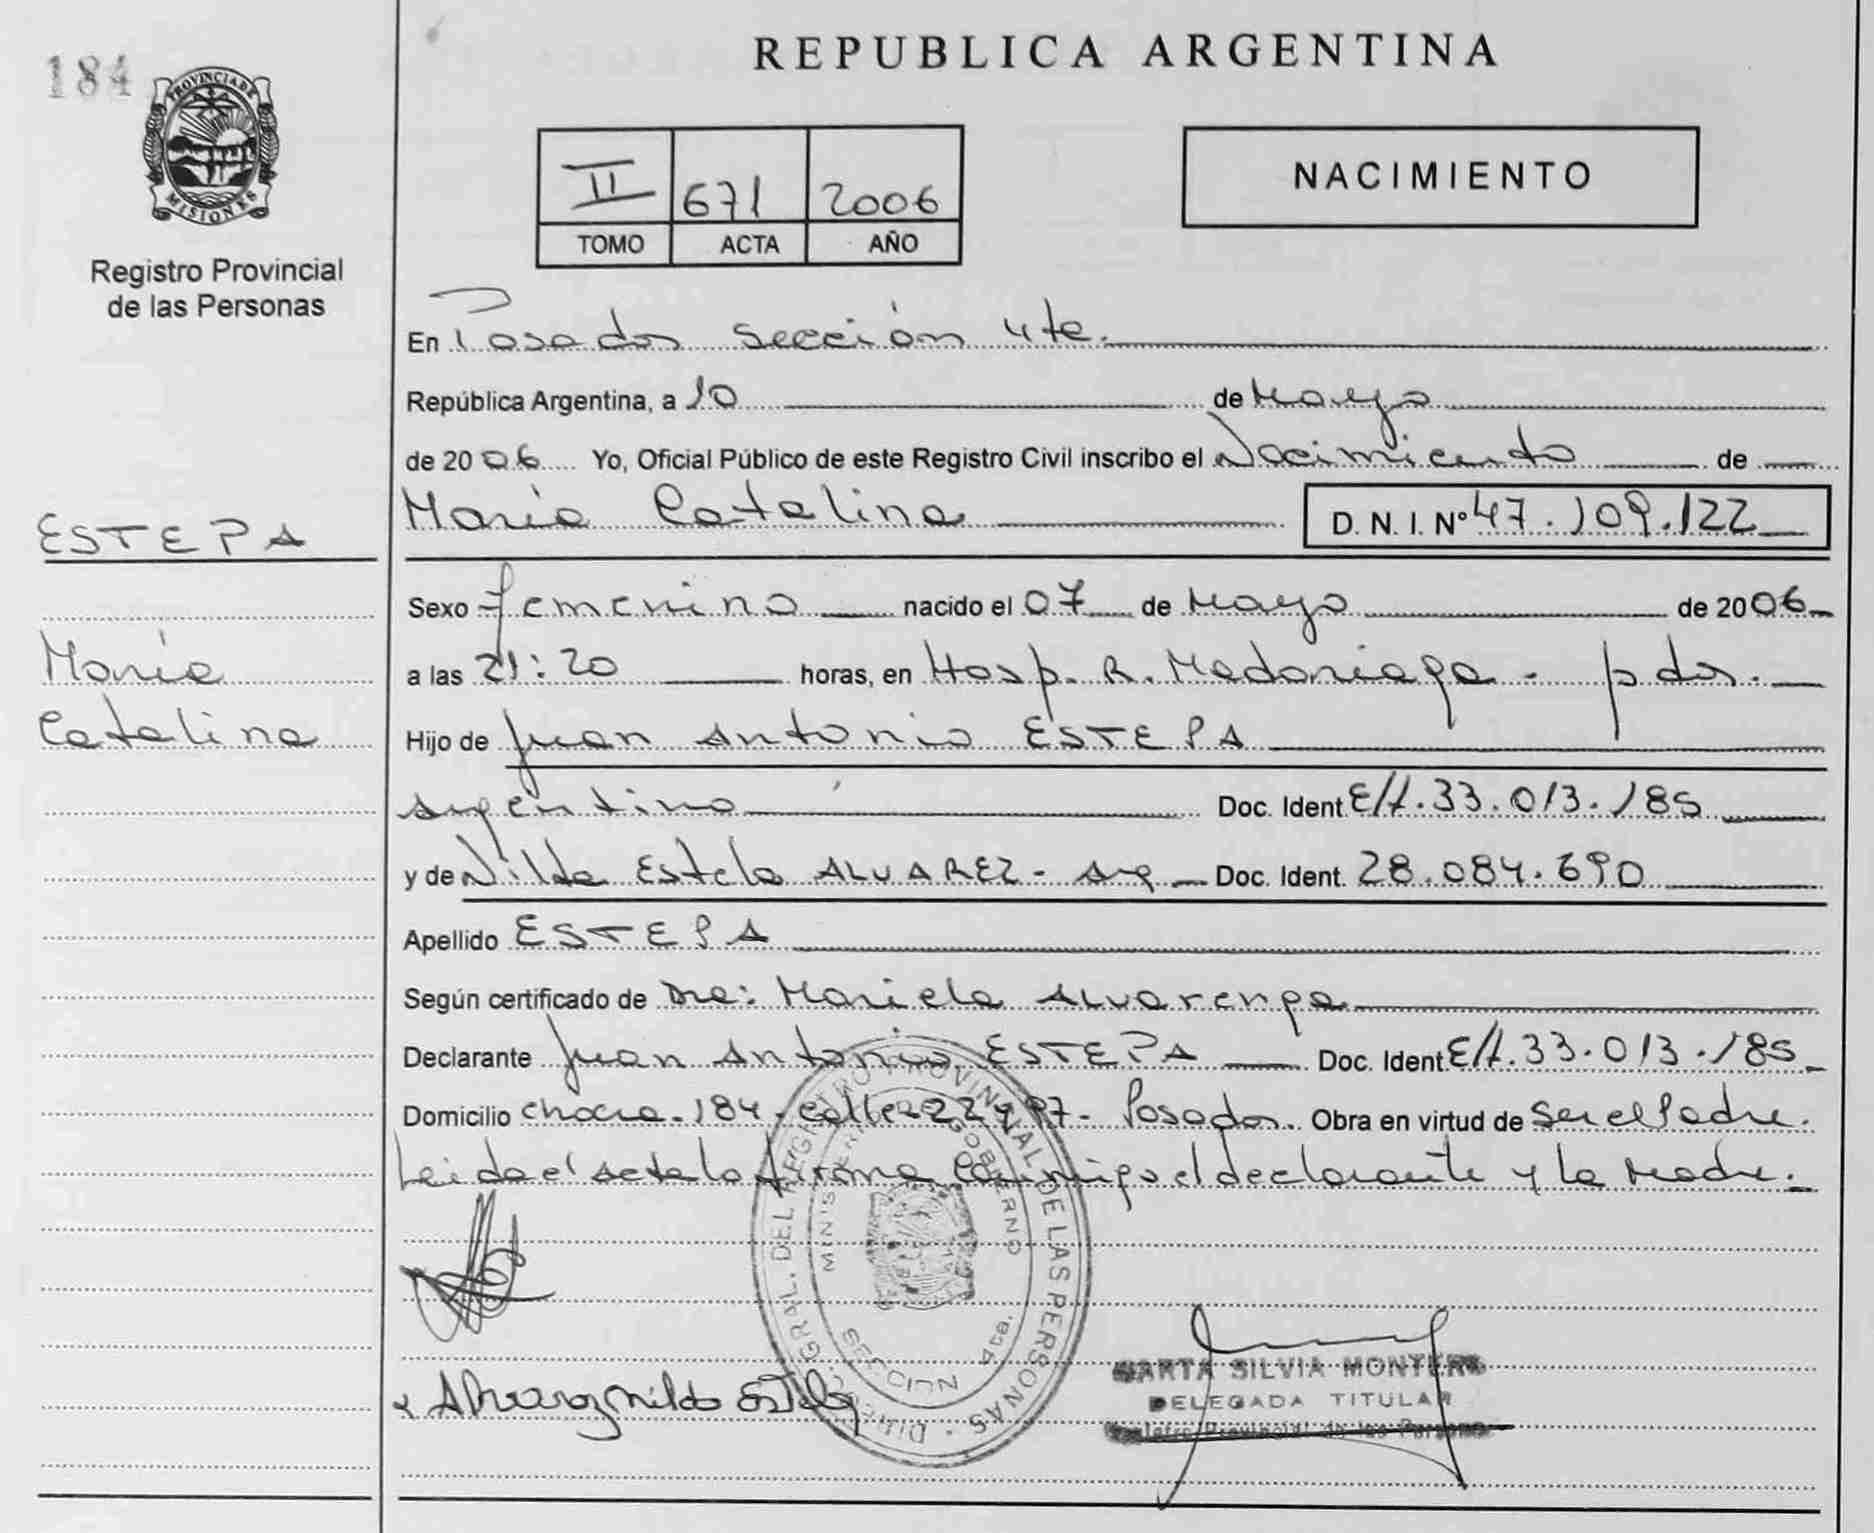 184
PROVINCIA DE
MISIONES
Registro Provincial
de las Personas
ESTEPA
María
Catalina
REPUBLICA ARGENTINA
II 671 2006
TOMO ACTA AÑO
NACIMIENTO
En Posadas sección 4ta.
República Argentina, a 10 de Mayo
de 2006 Yo, Oficial Público de este Registro Civil inscribo el Nacimiento de
María Catalina D. N. I. Nº 47.109.122
Sexo femenino nacido el 07 de Mayo de 2006
a las 21:20 horas, en Hosp. R. Madariaga - pdas.
Hijo de Juan Antonio ESTEPA
argentino Doc. Ident. E/t.33.013.185
y de Nilda Estela ALVAREZ - Arg Doc. Ident. 28.084.690
Apellido ESTEPA
Según certificado de Dra: Mariela Alvarenga
Declarante Juan Antonio ESTEPA Doc. Ident. E/t.33.013.185
Domicilio chacra-184-calle 22 y 97- Posadas. Obra en virtud de ser el Padre.
Leida el acta la firma conmigo el declarante y la madre.
DIRECC. GRAL. DEL REGISTRO PROVINCIAL DE LAS PERSONAS
MINISTERIO DE GOBIERNO
SECCION 4ta.
Alvarez Nilda Estela
MARTA SILVIA MONTERO
DELEGADA TITULAR
Registro Provincial de las Personas